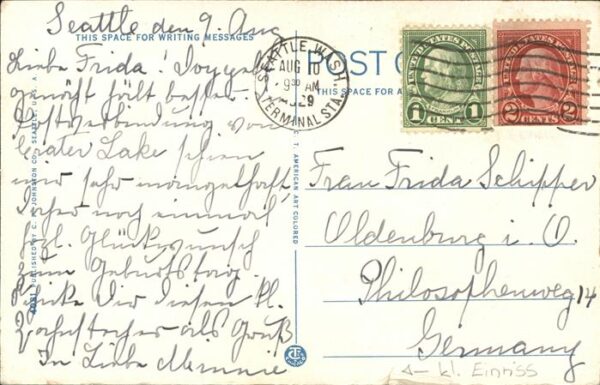 Seattle den 9. Aug
THIS SPACE FOR WRITING MESSAGES
Liebe Frida! Doppelt
genäht hält besser.
Postverbindung von
Crater Lake schien
mir sehr mangelhaft
Daher noch einmal
hzl. Glückwunsch
zum Geburtstag.
Dir diesen kl.
als Gruß
In Liebe Minnie
SEATTLE, WASH.
AUG 10
9 30 AM
1929
TERMINAL STA.
POST C
THIS SPACE FOR A
UNITED STATES POSTAGE
1 CENT 1
UNITED STATES POSTAGE
2 CENTS 2
Frau Frida Schipper
Oldenburg i. O.
Philosophenweg 14
Germany
kl. Einriss
PUBLISHED BY C. P. JOHNSTON CO., SEATTLE, U. S. A.
C. T. AMERICAN ART COLORED